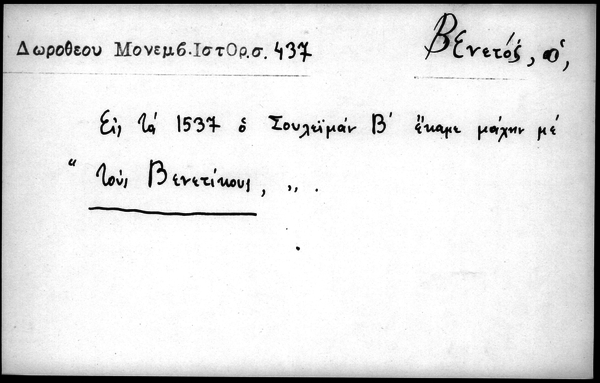 Δωροθεου Μονεμβ.ΙστΟρ.σ. 437
Βενετός, ὁ,
Εἰς τά 1537 ὁ Σουλεϊμάν Β΄ ἔκαμε μάχην μέ
“ τούς Βενετίκους, „ .